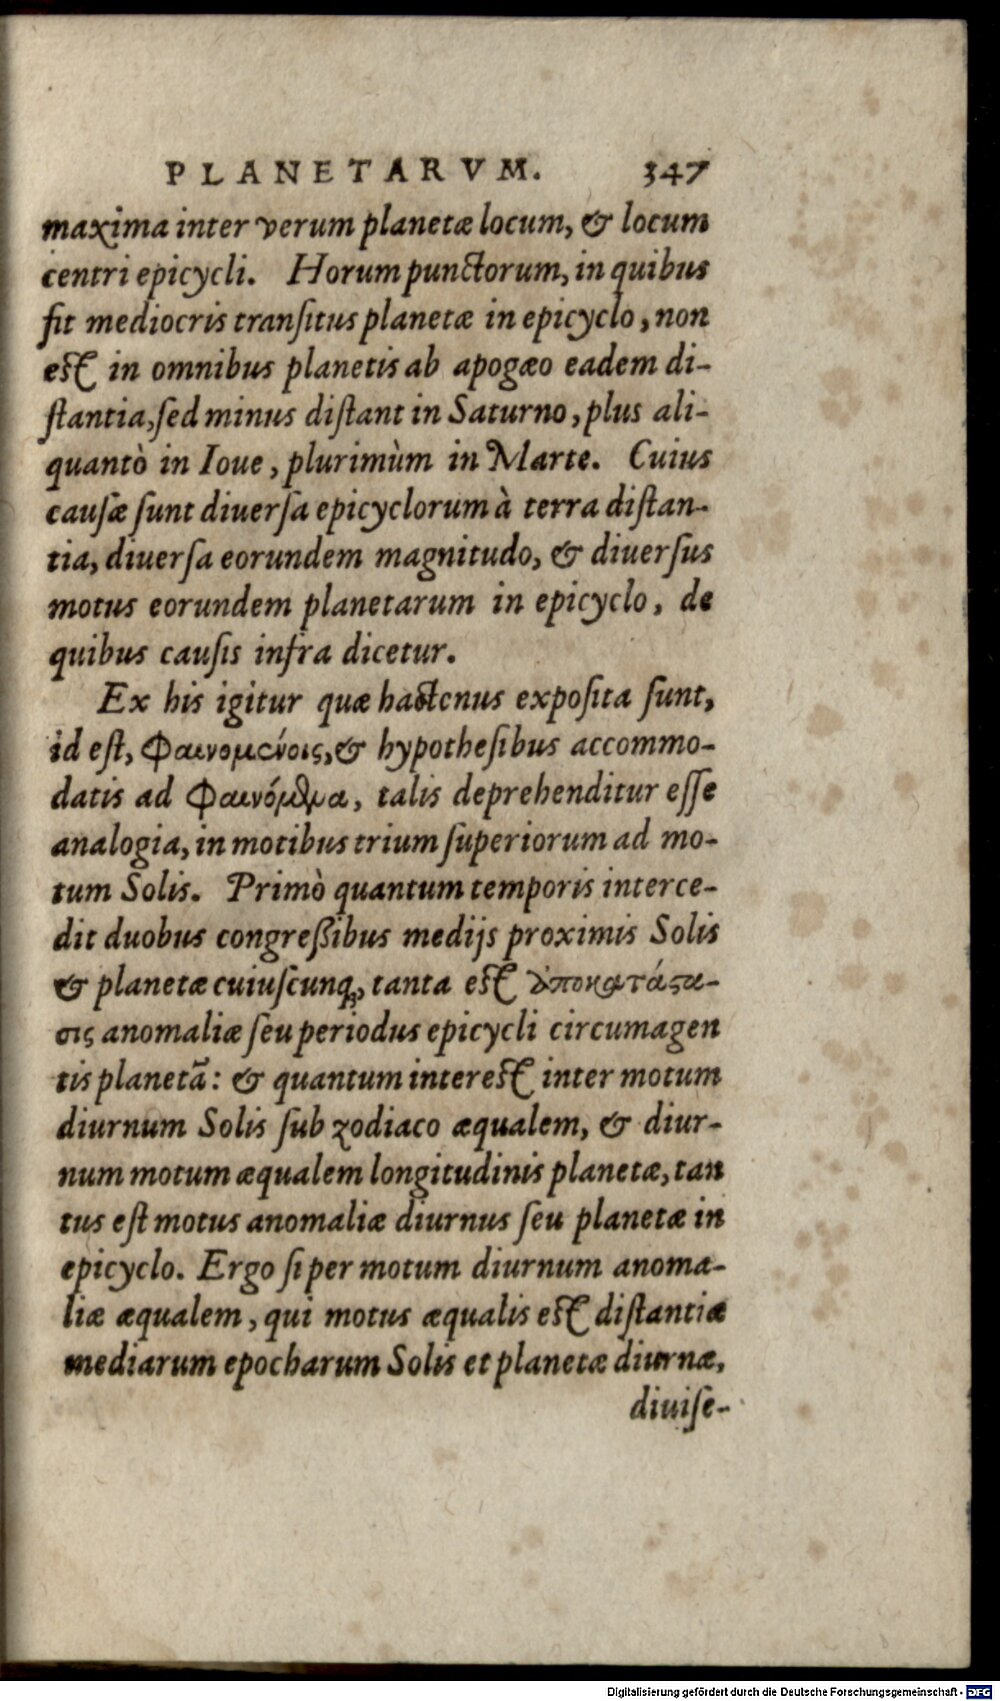 PLANETARVM. 347
maxima inter verum planetæ locum, & locum
centri epicycli. Horum punctorum, in quibus
fit mediocris transitus planetæ in epicyclo, non
est in omnibus planetis ab apogæo eadem di-
stantia, sed minus distant in Saturno, plus ali-
quantò in Ioue, plurimùm in Marte. Cuius
causæ sunt diuersa epicyclorum à terra distan-
tia, diuersa eorundem magnitudo, & diuersus
motus eorundem planetarum in epicyclo, de
quibus causis infra dicetur.
Ex his igitur quæ hactenus exposita sunt,
id est, Φαινομένοις, & hypothesibus accommo-
datis ad Φαινόμϑμα, talis deprehenditur esse
analogia, in motibus trium superiorum ad mo-
tum Solis. Primò quantum temporis interce-
dit duobus congreßibus medijs proximis Solis
& planetæ cuiuscunq;, tanta est ἀποκατάϛα-
σις anomaliæ seu periodus epicycli circumagen
tis planetã: & quantum interest inter motum
diurnum Solis sub zodiaco æqualem, & diur-
num motum æqualem longitudinis planetæ, tan
tus est motus anomaliæ diurnus seu planetæ in
epicyclo. Ergo si per motum diurnum anoma-
liæ æqualem, qui motus æqualis est distantiæ
mediarum epocharum Solis et planetæ diurnæ,
diuise-
Digitalisierung gefördert durch die Deutsche Forschungsgemeinschaft - DFG